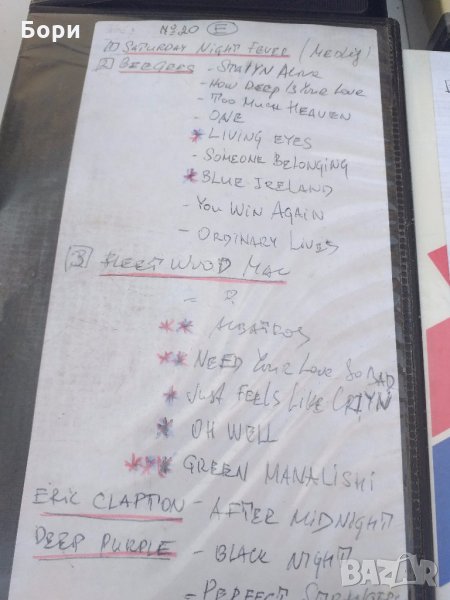 Бори
№20 E
1) SATURDAY NIGHT FEVER (Medly)
2 BEEGEES - STAYYN ALIVE
- HOW DEEP IS YOUR LOVE
- TOO MUCH HEAVEN
- ONE
* LIVING EYES
- SOMEONE BELONGING
* BLUE IRELAND
- YOU WIN AGAIN
- ORDINARY LIVES
3 FLEET WOOD MAC
- ?
** ALBATROS
** NEED YOUR LOVE SO BAD
* JUST FEELS LIKE CRIYN
* OH WELL
*** GREEN MANALISHI
ERIC CLAPTON - AFTER MIDNIGHT
DEEP PURPLE - BLACK NIGHT
- PERFECT STRANGERS
BAZAR